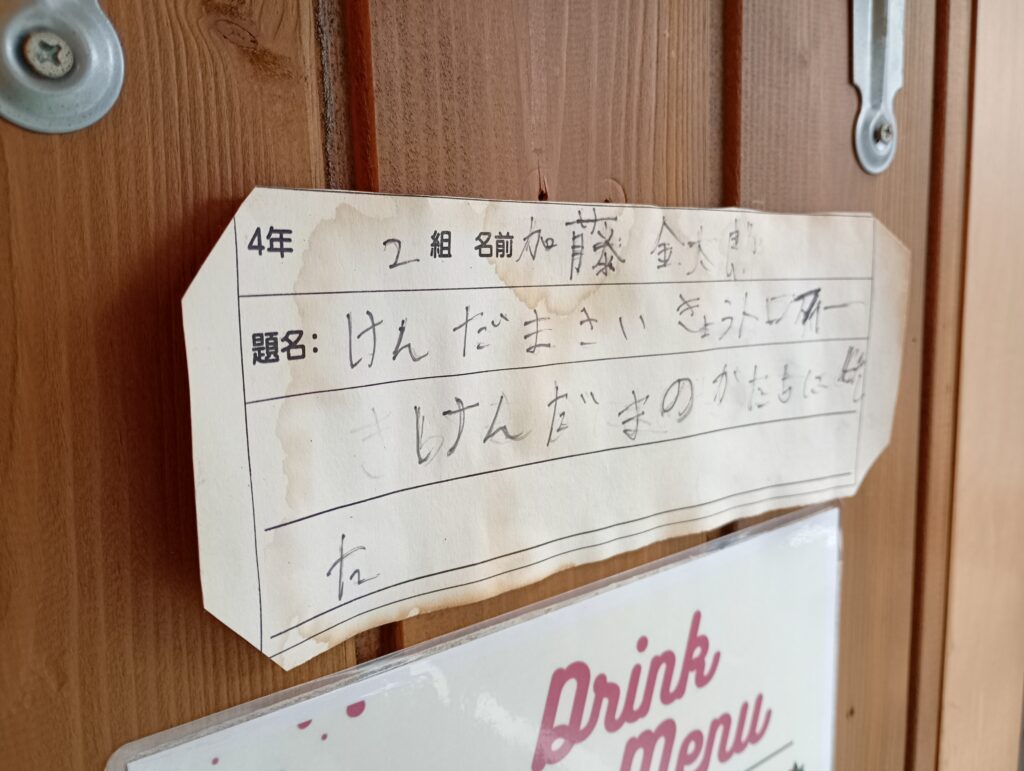 4年 2 組 名前 加藤 金太郎
題名: けんだまさいきょうトロフィー
けんだまのかたちにし
た
Drink
Menu